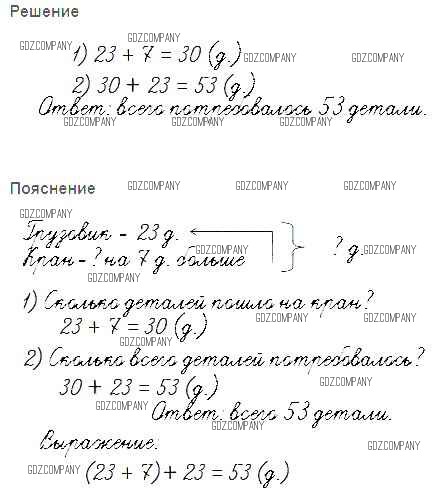 Решение
GDZCOMPANY
GDZCOMPANY
1) 23 + 7 = 30 (д.)
GDZCOMPANY GDZCOMPANY
2) 30 + 23 = 53 (д.)
Ответ: всего потребовалось 53 детали.
GDZCOMPANY GDZCOMPANY GDZCOMPANY
Пояснение GDZCOMPANY GDZCOMPANY GDZCOMPANY
GDZCOMPANY
Грузовик - 23 д.
Кран - ? на 7 д. больше GDZCOMPANY ? д. GDZCOMPANY
GDZCOMPANY
1) Сколько деталей пошло на кран?
23 + 7 = 30 (д.) GDZCOMPANY GDZCOMPANY
GDZCOMPANY
2) Сколько всего деталей потребовалось?
30 + 23 = 53 (д.) GDZCOMPANY
GDZCOMPANY
Ответ: всего 53 детали.
GDZCOMPANY
Выражение: GDZCOMPANY
GDZCOMPANY (23 + 7) + 23 = 53 (д.)